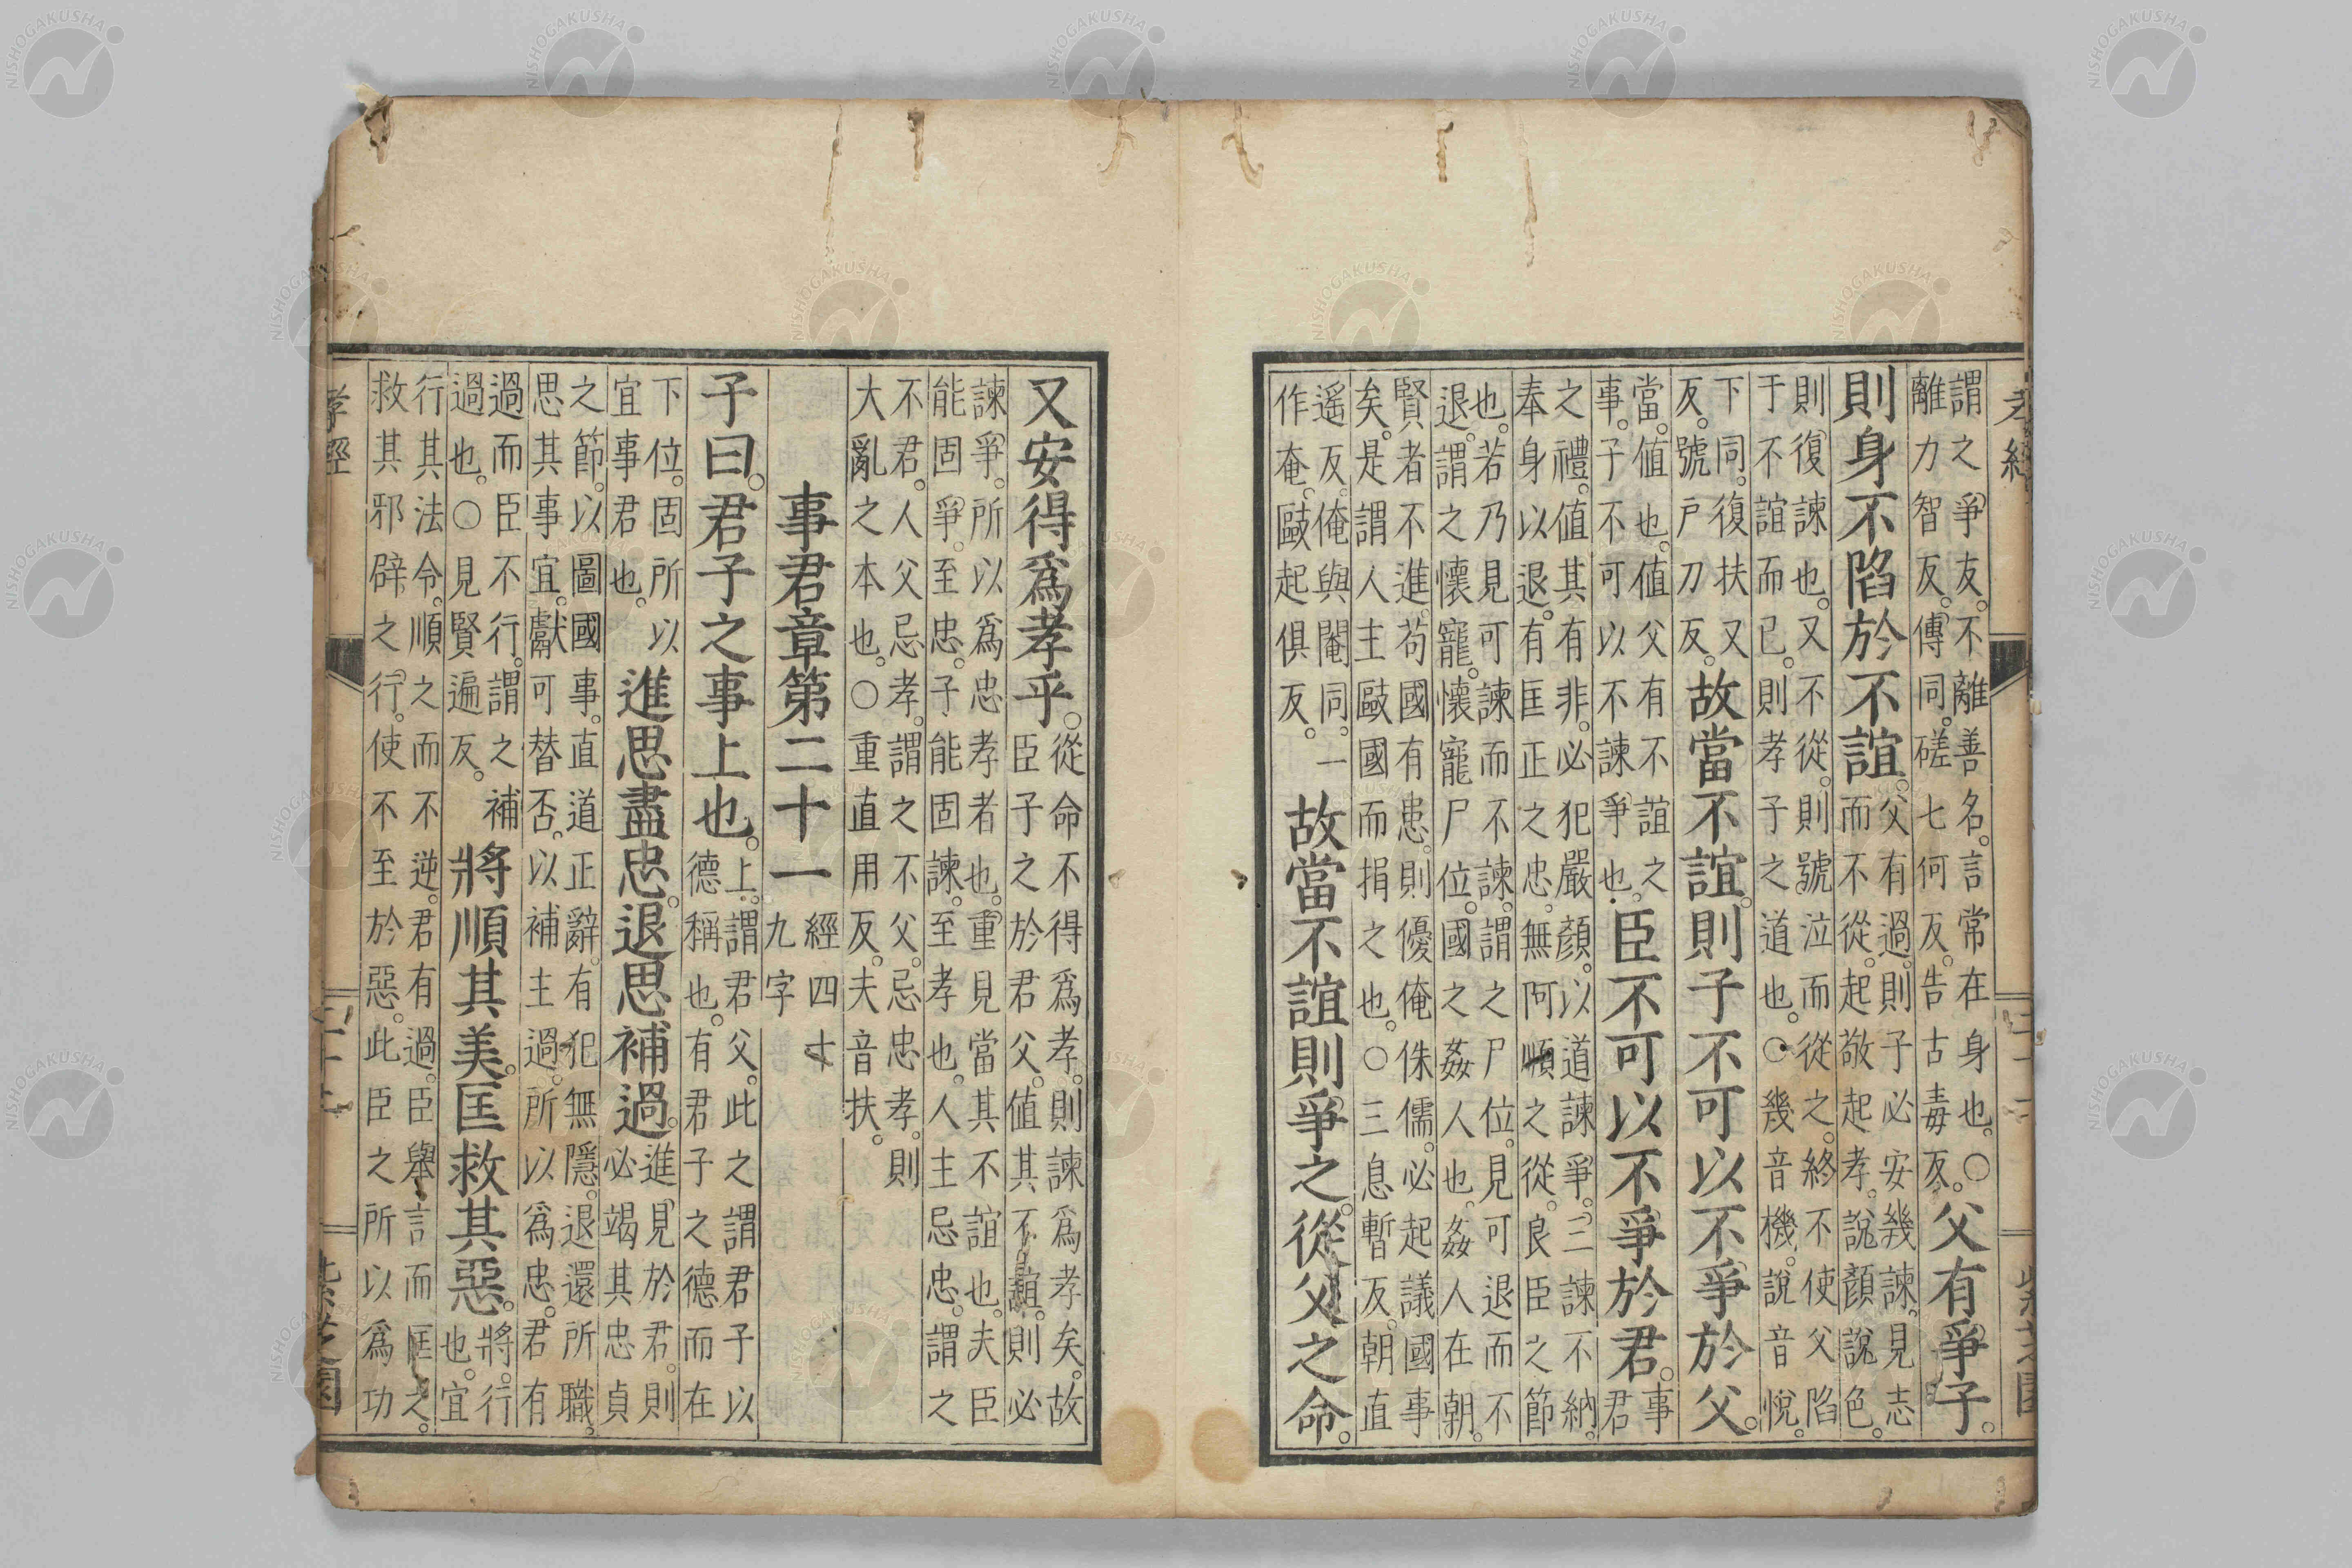 謂之爭友。不離善名。言常在身也。〇
離力智反。傳同。磋七何反。告古毒反。
父有爭子。
則身不陷於不誼。
父有過。則子必安幾諫。見志
而不從。起敬起孝。說顏說色。
則復諫也。又不從。則號泣而從之。終不使父陷
于不誼而已。則孝子之道也。〇幾音機。說音悅。
下同。復扶又
反。號戶刀反。
故當不誼。則子不可以不爭於父。
當。值也。值父有不誼之
事。子不可以不諫爭也。
臣不可以不爭於君。
事
君
之禮。值其有非。必犯嚴顏。以道諫爭。三諫不納。
奉身以退。有匡正之忠。無阿順之從。良臣之節
也。若乃見可諫而不諫。謂之尸位。見可退而不
退。謂之懷寵。懷寵尸位。國之姦人也。姦人在朝。
賢者不進。苟國有患。則優俺侏儒。必起議國事
矣。是謂人主敺國而捐之也。〇三息暫反。朝直
遥反。俺與閹同。一
作奄。敺起俱反。
故當不誼則爭之。從父之命。
又安得爲孝乎。
從命不得爲孝。則諫爲孝矣。故
臣子之於君父。值其不誼。則必
諫爭。所以爲忠孝者也。重見當其不誼也。夫臣
能固爭。至忠。子能固諫。至孝也。人主忌忠。謂之
不君。人父忌孝。謂之不父。忌忠孝。則
大亂之本也。〇重直用反。夫音扶。
事君章第二十一
經四十
九字
子曰。君子之事上也。
上。謂君父。此之謂君子以
德稱也。有君子之德而在
下位。固所以
宜事君也。
進思盡忠。退思補過。
進見於君。則
必竭其忠貞
之節。以圖國事。直道正辭。有犯無隱。退還所職。
思其事宜。獻可替否。以補主過。所以爲忠。君有
過而臣不行。謂之補
過也。〇見賢遍反。
將順其美。匡救其惡。
將。行
也。宜
行其法令。順之而不逆。君有過。臣舉言而匡之。
救其邪辟之行。使不至於惡。此臣之所以爲功
孝經
紫芝園
NISHOGAKUSHA